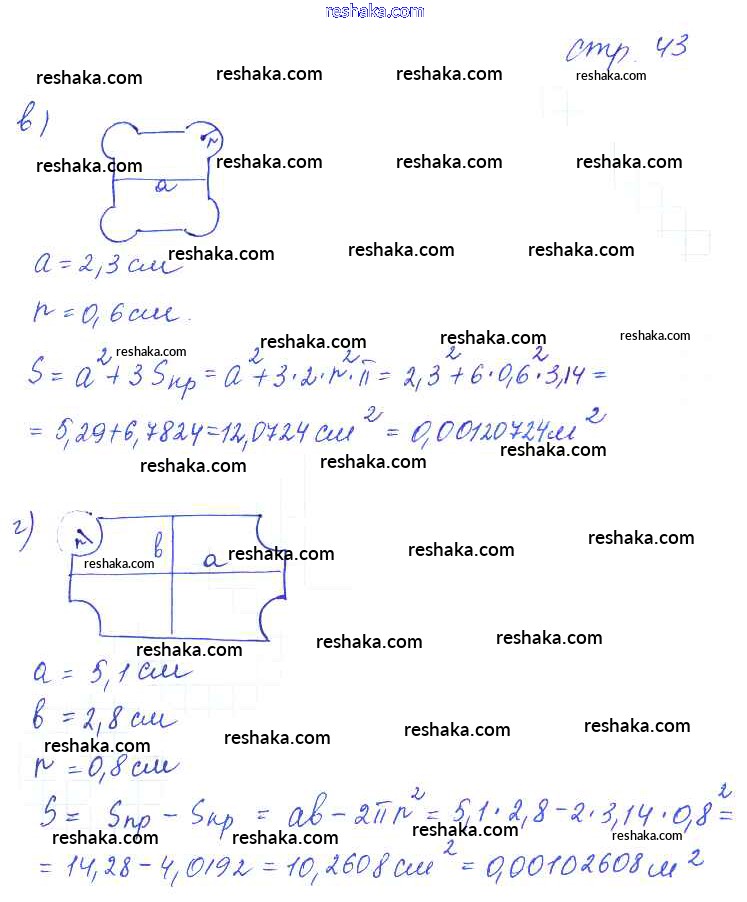 reshaka.com
стр. 43
reshaka.com reshaka.com reshaka.com reshaka.com
в)
r
reshaka.com reshaka.com reshaka.com reshaka.com
a
reshaka.com reshaka.com reshaka.com
a = 2,3 см
r = 0,6 см.
reshaka.com reshaka.com reshaka.com reshaka.com
S = a² + 3 Sкр = a² + 3 · 2 · r² · π = 2,3² + 6 · 0,6² · 3,14 =
= 5,29 + 6,7824 = 12,0724 см² = 0,00120724 м²
reshaka.com reshaka.com reshaka.com
г)
r в a
reshaka.com reshaka.com reshaka.com reshaka.com
reshaka.com reshaka.com reshaka.com
a = 5,1 см
в = 2,8 см
reshaka.com reshaka.com reshaka.com reshaka.com
r = 0,8 см
S = Sпр - Sкр = aв - 2πr² = 5,1 · 2,8 - 2 · 3,14 · 0,8² =
reshaka.com reshaka.com reshaka.com reshaka.com
= 14,28 - 4,0192 = 10,2608 см² = 0,00102608 м²